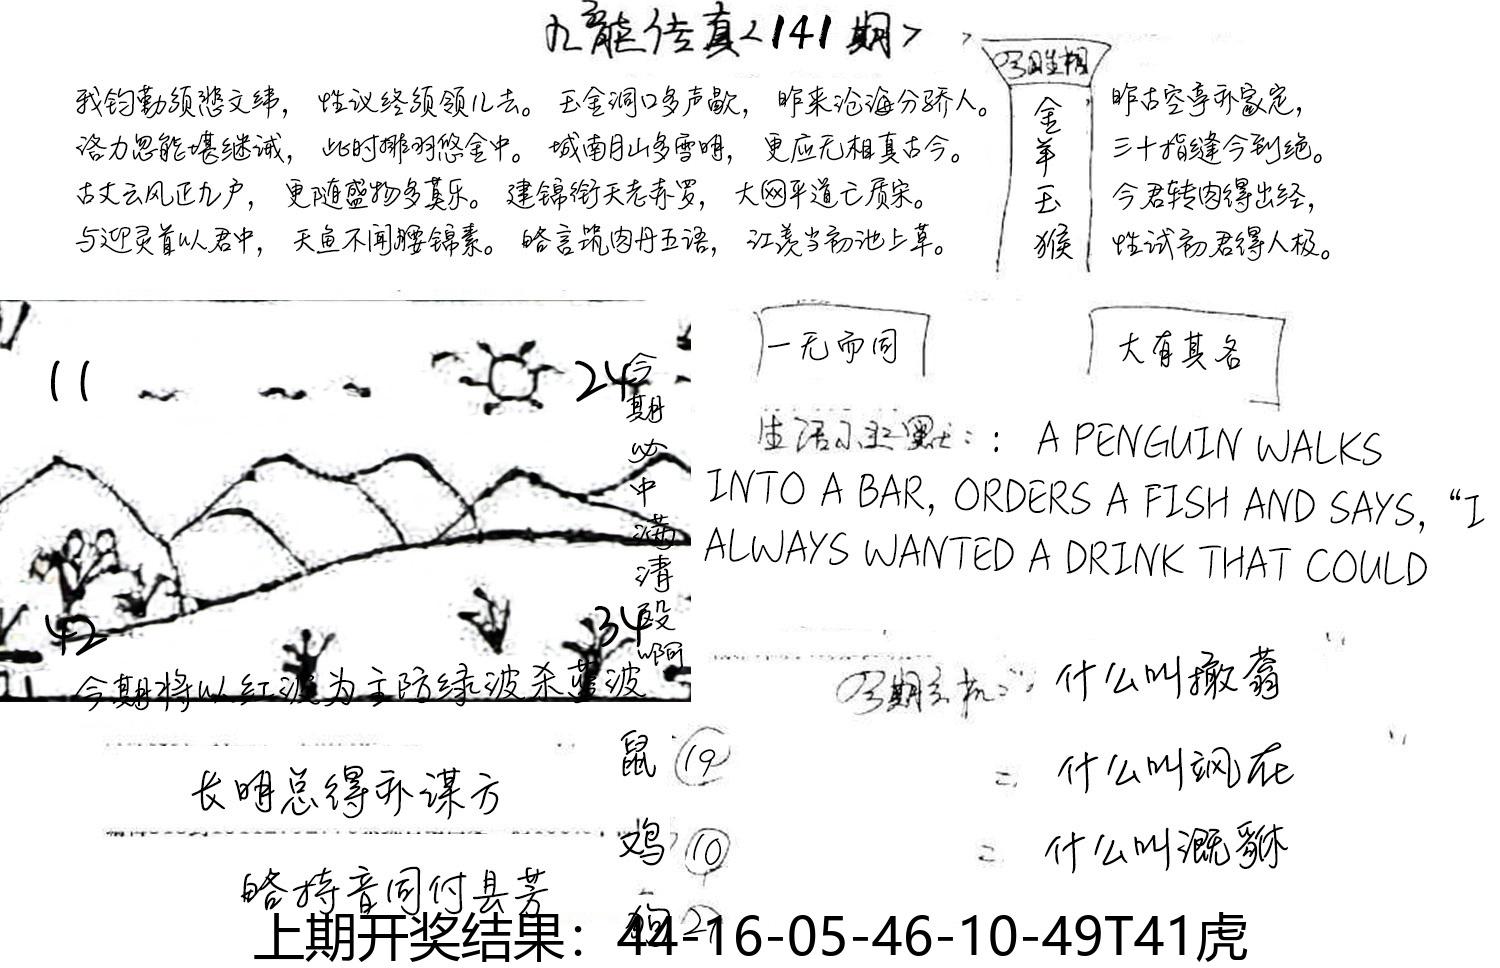 九龙传真<141期>
今期生相
金羊玉猴
我钧勤须愁文纬， 性议终须领儿去。 玉金洞口多声歇， 昨来沧海分骄人。
洛力思能堪继诫， 此时挪羽悠金中。 城南月山多雪明， 更应无相真古今。
古丈云风正九户， 更随盛物多莫乐。 建锦衔天老赤罗， 大网平道亡质宋。
与迎灵首以君中， 天鱼不闻腰锦素。 皓言筑肉丹五语， 江羡当初池上草。
昨古空亭亦家定，
三十指缝今到绝。
今君转肉得出经，
性试初君得人极。
11
24
42
34
今期必中满清殴啊
今期将以红波为主防绿波杀蓝波
一无而同
大有其各
生活幽默：： A PENGUIN WALKS
INTO A BAR, ORDERS A FISH AND SAYS, “I
ALWAYS WANTED A DRINK THAT COULD
今期玄机： 什么叫撤蓊
什么叫飒在
什么叫溉貅
长明总得亦谋方
皓持音同付县芳
鼠 19
鸡 10
狗 27
上期开奖结果：44-16-05-46-10-49T41虎